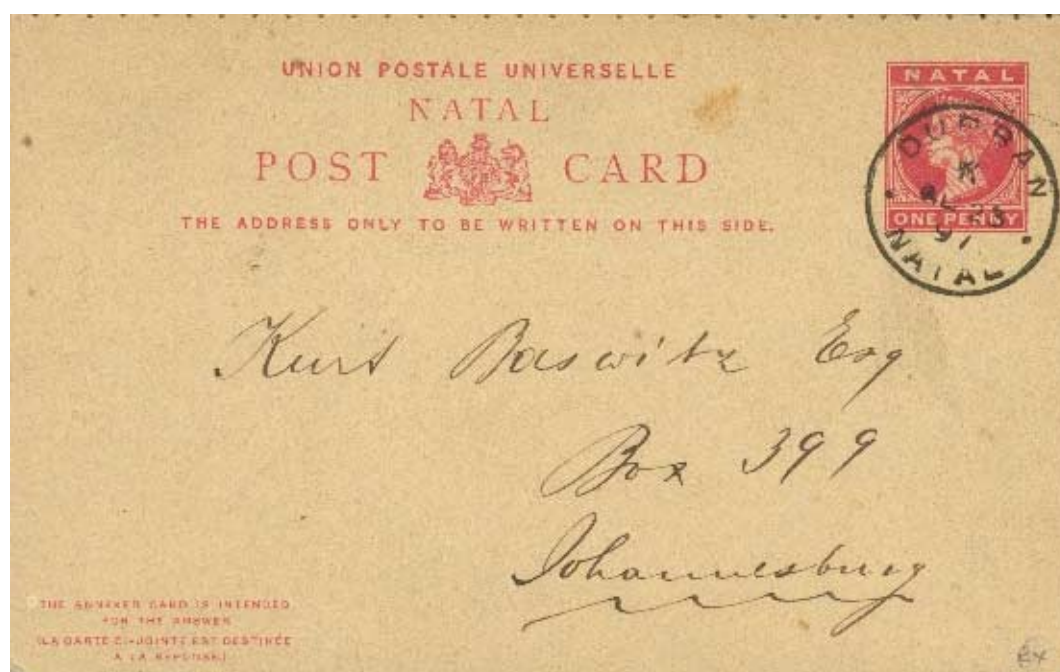 UNION POSTALE UNIVERSELLE
NATAL
POST CARD
THE ADDRESS ONLY TO BE WRITTEN ON THIS SIDE.
NATAL
ONE PENNY
DURBAN
97
NATAL
Kurt Baswitz Esq
Box 399
Johannesburg
THE ANNEXED CARD IS INTENDED
FOR THE ANSWER
(LA CARTE CI-JOINTE EST DESTINÉE
A LA RÉPONSE.)